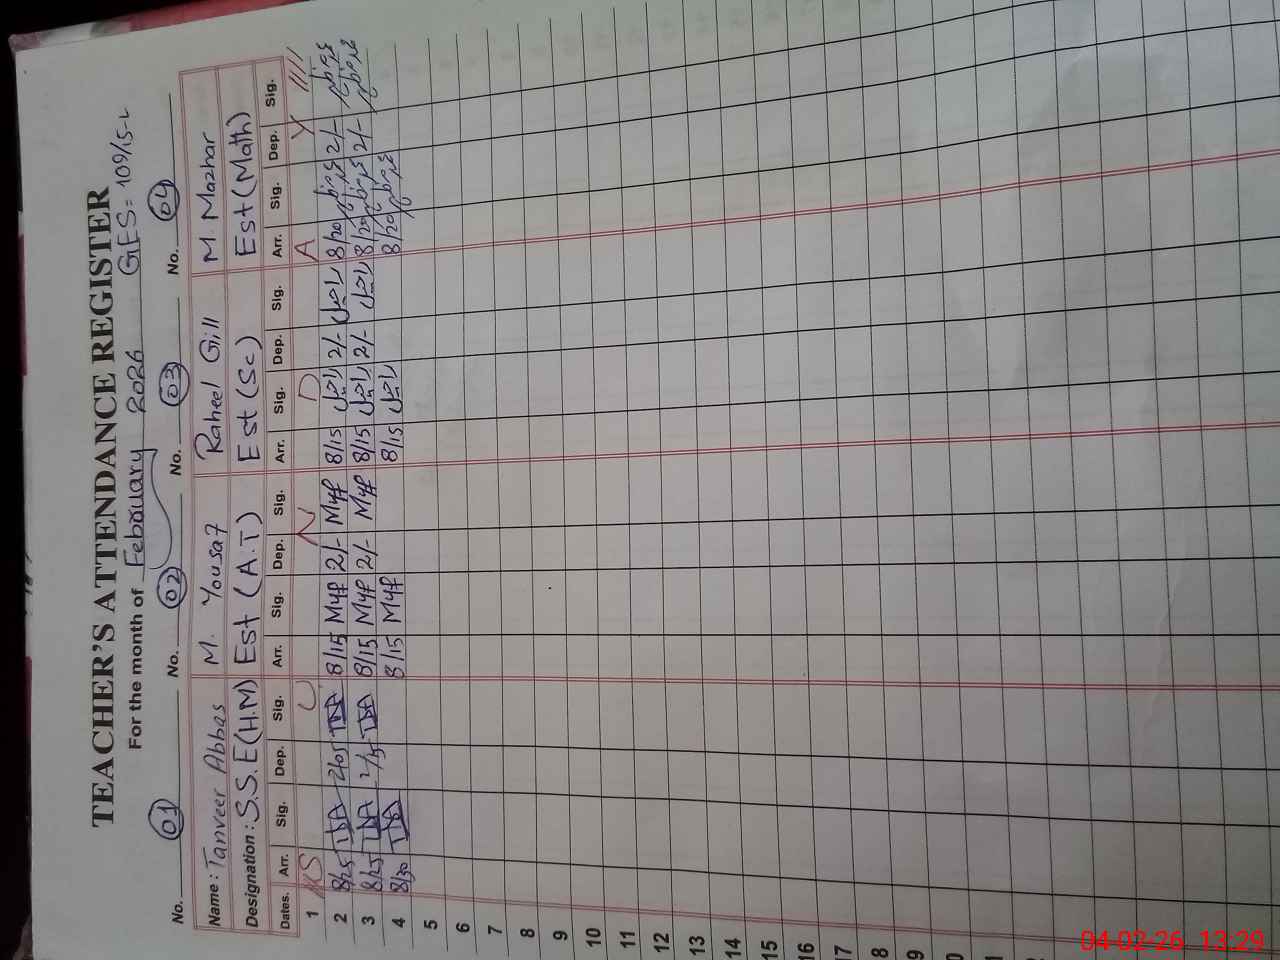 TEACHER'S ATTENDANCE REGISTER
For the month of February 2026 GES= 109/15-L
No. 01 No. 02 No. 03 No. 04
Name: Tanveer Abbas M. Yousaf Raheel Gill M. Mazhar
Designation: S.S.E(H.M) Est (A.T) Est (Sc) Est (Math)
Dates. Arr. Sig. Dep. Sig. Arr. Sig. Dep. Sig. Arr. Sig. Dep. Sig. Arr. Sig. Dep. Sig.
1 S U N D A Y
2 8/25 TBA 2/05 TBA 8/15 Myf 2/- Myf 8/15 2/- 8/20 2/-
3 8/25 TBA 2/15 TBA 8/15 Myf 2/- Myf 8/15 2/- 8/20 2/-
4 8/30 TBA 8/15 Myf 8/15 8/20
5
6
7
8
9
10
11
12
13
14
15
16
17
8
9
04-02-26 13:29